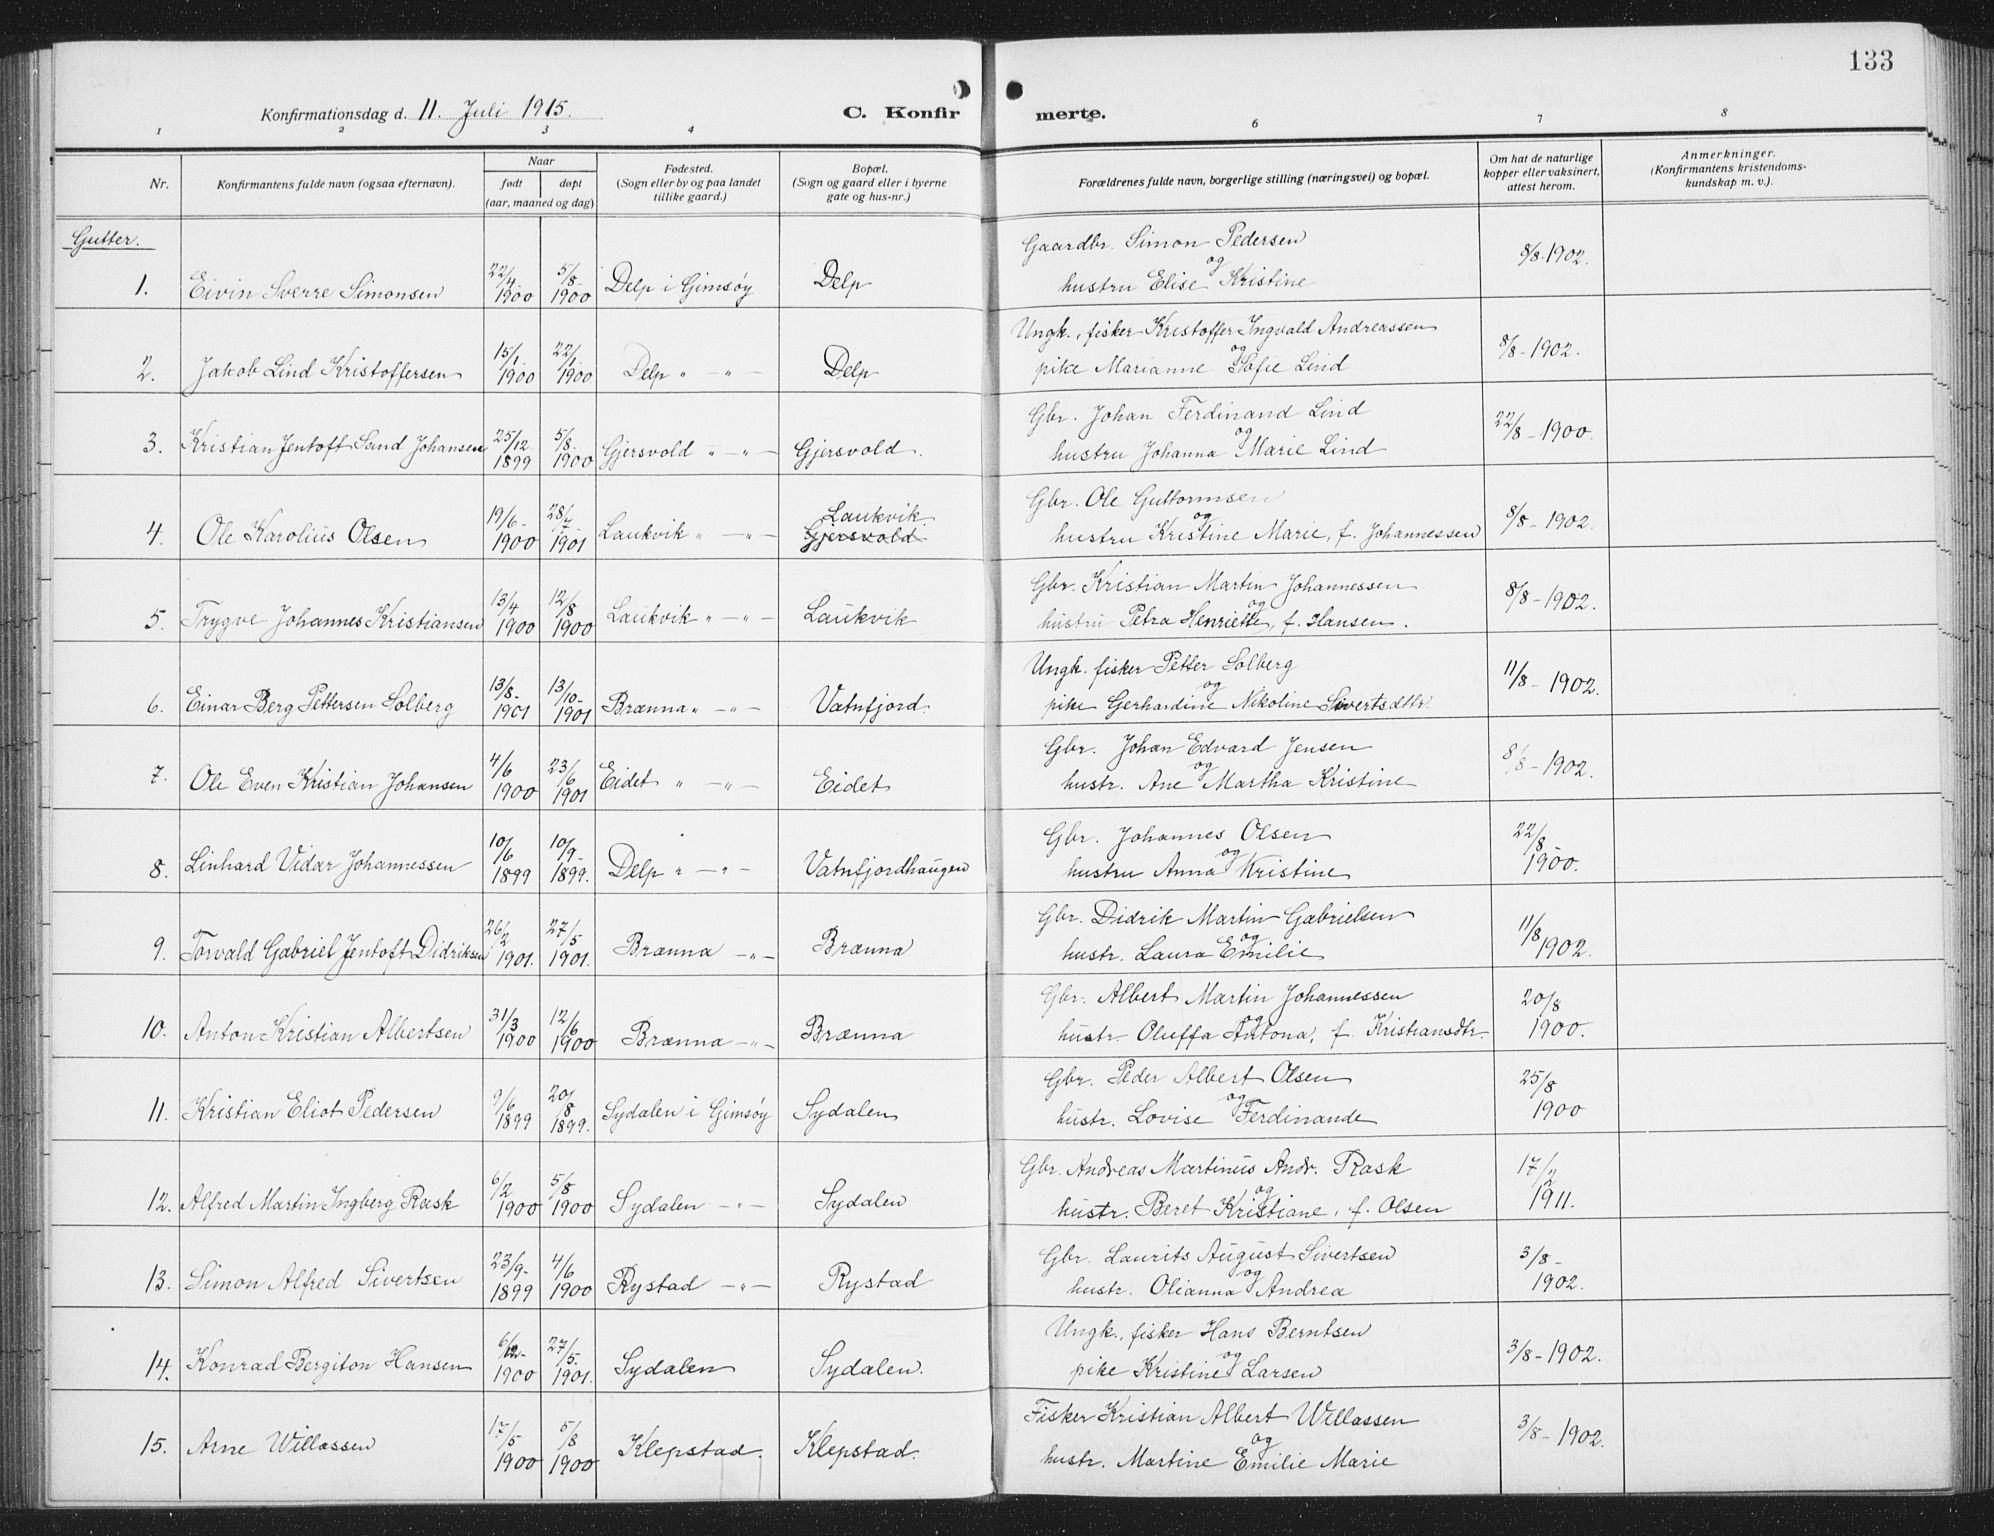 133
Konfirmationsdag d. 11. Juli 1915.
C. Konfirmerte.
1 2 3 4 6 7 8
Nr.
Konfirmantens fulde navn (ogsaa efternavn).
Naar
født døpt
(aar, maaned og dag)
Fødested.
(Sogn eller by og paa landet
tillike gaard.)
Bopæl.
(Sogn og gaard eller i byerne
gate og hus-nr.)
Forældrenes fulde navn, borgerlige stilling (næringsvei) og bopæl.
Om hat de naturlige
kopper eller vaksinert,
attest herom.
Anmerkninger.
(Konfirmantens kristendoms-
kundskap m. v.).
Gutter.
1. Eivin Sverre Simonsen 22/4- 1900 5/8- 1900 Delp i Gimsøy Delp
Gaardbr. Simon Pedersen
og
hustru Elise Kristine
8/8-1902.
2. Jakob Lind Kristoffersen 15/1- 1900 22/1- 1900 Delp " — " — Delp
Ungk., fisker Kristoffer Ingvald Andreassen
og
pike Marianne Sofie Lind
8/8-1902.
3. Kristian Jentoft Lund Johansen 25/12- 1899 5/8- 1900 Gjersvold " — " — Gjersvold.
Gbr. Johan Ferdinand Lind
og
hustru Johanna Marie Lind
22/8-1900.
4. Ole Karolius Olsen 19/6- 1900 28/7- 1901 Laukvik " — " — Laukvik
Gjersvold
Gbr. Ole Guttormsen
og
hustru Kristine Marie, f. Johannessen
8/8-1902.
5. Trygve Johannes Kristiansen 13/4 1900 12/8 1900 Laukvik " — " — Laukvik
Gbr. Kristian Martin Johannessen
og
hustru Petra Henriette, f. Hansen.
8/8-1902.
6. Einar Berg Pettersen Solberg 13/8- 1901 13/10- 1901 Brænna " — " — Vatnfjord.
Ungk. fisker Petter Solberg
og
pike Gerhardine Nikoline Sivertsdtr.
11/8-1902.
7. Ole Even Kristian Johansen 4/6 1900 23/6 1901 Eidet " — " — Eidet
Gbr. Johan Edvard Jensen
og
hustr. Ane Martha Kristine
8/8-1902.
8. Linhard Vidar Johannessen 10/6 1899 10/9- 1899. Delp " — " — Vatnfjordhaugen
Gbr. Johannes Olsen
og
hustru Anna Kristine
22/8- 1900.
9. Torvald Gabriel Jentoft Didriksen 26/2 1901. 27/5 1901. Brænna — " — Brænna
Gbr. Didrik Martin Gabrielsen
og
hustr. Laura Emilie
11/8 1902.
10. Anton Kristian Albertsen 31/3 1900 12/6 1900 Brænna — " — Brænna
Gbr. Albert Martin Johannessen
og
hustr. Oluffa Antona, f. Kristiansdtr.
20/8 1900.
11. Kristian Eliot Pedersen 9/6 1899 20/8 1899. Sydalen i Gimsøy Sydalen
Gbr. Peder Albert Olsen
og
hustr. Lovise Ferdinande
25/8 1900
12. Alfred Martin Ingberg Rask 6/2 1900 5/8 1900 Sydalen — " — Sydalen
Gbr. Andreas Martinus Andr. Rask
og
hustr. Beret Kristiane, f. Olsen
17/2 1911.
13. Simon Alfred Sivertsen 23/9- 1899 4/6 1900 Rystad — " — Rystad
Gbr. Laurits August Sivertsen
og
hustr. Olianna Andrea
3/8- 1902.
14. Konrad Bergiton Hansen 6/12- 1900 27/5. 1901. Sydalen Sydalen.
Ungk., fisker Hans Berntsen
og
pike Kristine Larsen
3/8-1902.
15. Arne Willassen 17/5 1900 5/8 1900 Klepstad. Klepstad.
Fisker Kristian Albert Willassen
og
hustr. Martine Emilie Marie
3/8-1902.